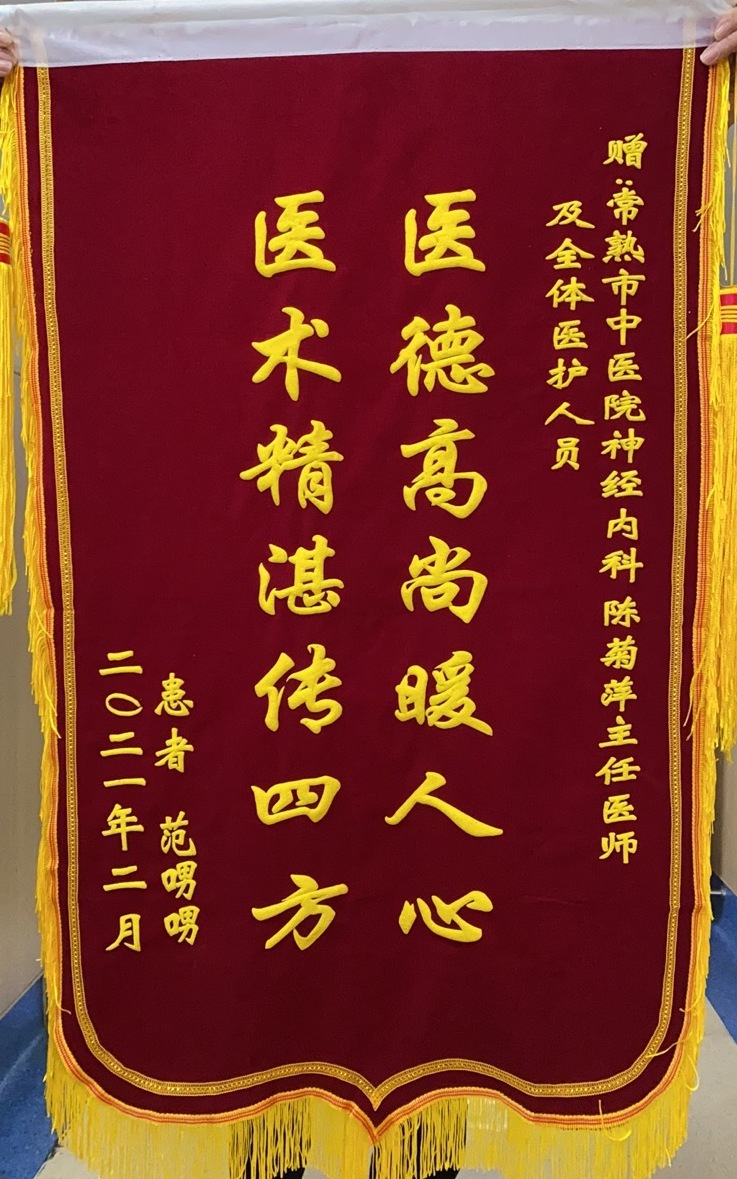 赠:常熟市中医院神经内科 陈菊萍主任医师
及全体医护人员
医德高尚暖人心
医术精湛传四方
患者 范嘐嘐
二〇二一年二月